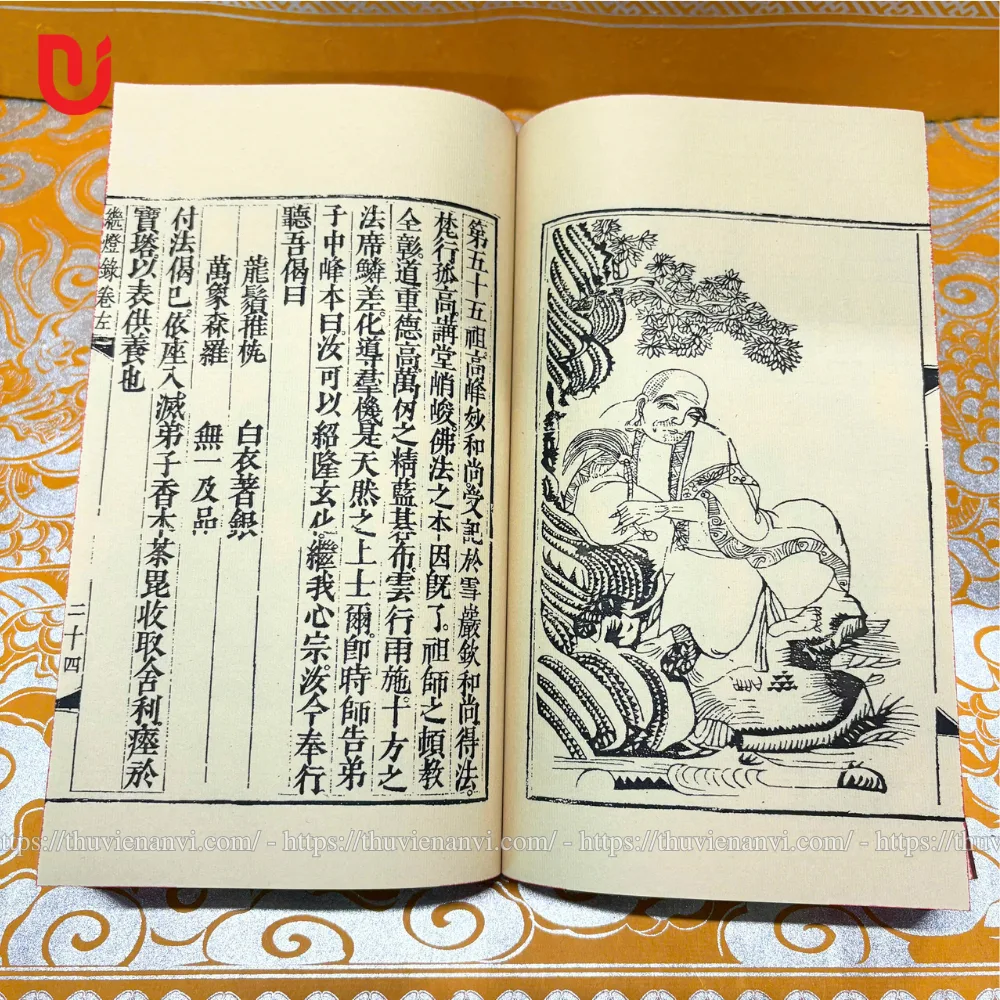 第五十五祖高峰妙和尚受記於雪巖欽和尚得法。
梵行孤高。講堂峭峻。佛法之本因旣了。祖師之頓教
全彰。道重德高。萬仞之精藍碁布。雲行雨施。十方之
法席鱗差。化導羣機。是天然之上士爾。卽時師告弟
子中峰本曰。汝可以紹隆玄化。繼我心宗。汝今奉行
聽吾偈曰
龍鬚推㭠 白衣著銀
萬象森羅 無一及品
付法偈已。依座入滅。弟子香木茶毘收取舍利瘞於
寶塔。以表供養也
繼燈錄卷左 二十四
https://thuvienanvi.com/ - https://thuvienanvi.com/ - https://thuvienanvi.com/ - https://thuv